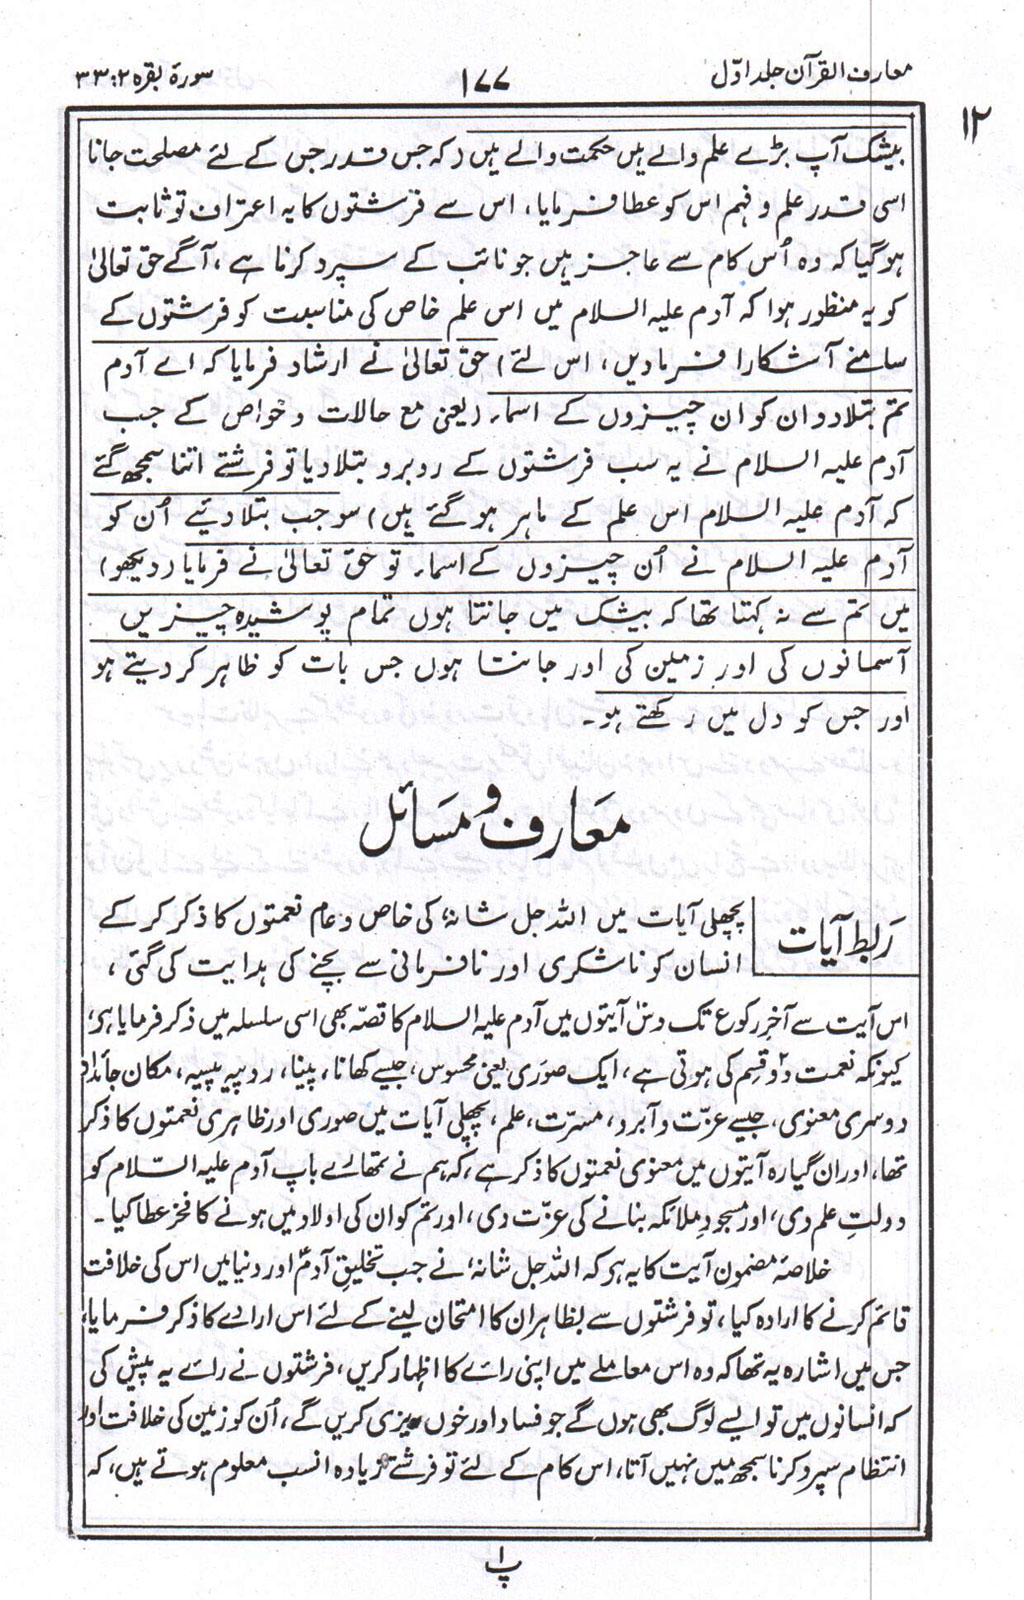 معارف القرآن جلد اوّل
۱۷۷
سورۂ بقرہ ۲ : ۳۳
۱۲
بیشک آپ بڑے علم والے ہیں حکمت والے ہیں (کہ جس قدر جس کے لئے مصلحت جانا
اسی قدر علم و فہم اس کو عطا فرمایا، اس سے فرشتوں کا یہ اعتراف تو ثابت
ہوگیا کہ وہ اُس کام سے عاجز ہیں جو نائب کے سپرد کرنا ہے، آگے حق تعالیٰ
کو یہ منظور ہوا کہ آدم علیہ السلام میں اس علم خاص کی مناسبت کو فرشتوں کے
سامنے آشکارا فرمادیں، اس لئے) حق تعالیٰ نے ارشاد فرمایا کہ اے آدم
تم بتلادو ان کو ان چیزوں کے اسماء (یعنی مع حالات و خواص کے جب
آدم علیہ السلام نے یہ سب فرشتوں کے روبرو بتلادیا تو فرشتے اتنا سمجھ گئے
کہ آدم علیہ السلام اس علم کے ماہر ہوگئے ہیں) سو جب بتلادئیے اُن کو
آدم علیہ السلام نے اُن چیزوں کے اسماء تو حق تعالیٰ نے فرمایا (دیکھو)
میں تم سے نہ کہتا تھا کہ بیشک میں جانتا ہوں تمام پوشیدہ چیزیں
آسمانوں کی اور زمین کی اور جانتا ہوں جس بات کو ظاہر کردیتے ہو
اور جس کو دل میں رکھتے ہو۔
معارف و مسائل
ربط آیات
پچھلی آیات میں اللہ جل شانہٗ کی خاص و عام نعمتوں کا ذکر کرکے
انسان کو ناشکری اور نافرمانی سے بچنے کی ہدایت کی گئی،
اس آیت سے آخرِ رکوع تک دسؔ آیتوں میں آدم علیہ السلام کا قصّہ بھی اسی سلسلہ میں ذکر فرمایا ہر؛
کیونکہ نعمت دو قسم کی ہوتی ہے، ایک صوری یعنی محسوس، جیسے کھانا، پینا، روپیہ پیسہ، مکان جائداد
دوسری معنوی، جیسے عزّت و آبرو، مسرّت، علم، پچھلی آیات میں صوری اور ظاہری نعمتوں کا ذکر
تھا، اور ان گیارہ آیتوں میں معنوی نعمتوں کا ذکر ہے، کہ ہم نے تمھارے باپ آدم علیہ السّلام کو
دولتِ علم دی، اور مسجودِ ملائکہ بنانے کی عزّت دی، اور تم کو ان کی اولاد میں ہونے کا فخر عطا کیا۔
خلاصۂ مضمون آیت کا یہ ہر کہ اللہ جل شانہٗ نے جب تخلیقِ آدمؑ اور دنیا میں اس کی خلافت
قائم کرنے کا ارادہ کیا، تو فرشتوں سے بظاہر ان کا امتحان لینے کے لئے اس ارادے کا ذکر فرمایا،
جس میں اشارہ یہ تھا کہ وہ اس معاملے میں اپنی رائے کا اظہار کریں، فرشتوں نے رائے یہ پیش کی
کہ انسانوں میں تو ایسے لوگ بھی ہوں گے جو فساد اور خوں ریزی کریں گے، اُن کو زمین کی خلافت اور
انتظام سپرد کرنا سمجھ میں نہیں آتا، اس کام کے لئے تو فرشتے زیادہ انسب معلوم ہوتے ہیں، کہ
پ ۱